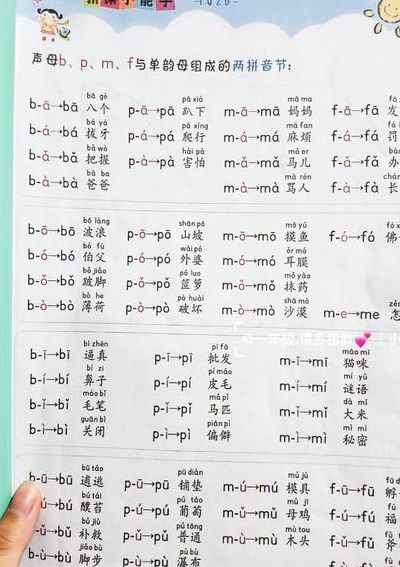 拼读小能手
-PQZD-
声母b、p、m、f与单韵母组成的两拼音节:
bā gè pā xià mā ma
b-ā→bā 八个 p-ā→pā 趴下 m-ā→mā 妈妈 f-ā→fā 发
bá yá pá xíng má fan
b-á→bá 拔牙 p-á→pá 爬行 m-á→má 麻烦 f-á→fá
bǎ wò hài pà mǎ ér
b-ǎ→bǎ 把握 p-à→pà 害怕 m-ǎ→mǎ 马儿 f-ǎ→fǎ 办
bà ba mà rén
b-à→bà 爸爸 m-à→mà 骂人 f-à→fà 长
bō làng shān pō mō yú
b-ō→bō 波浪 p-ō→pō 山坡 m-ō→mō 摸鱼 f-ó→fó 佛
bó fù wài pó ěr mó
b-ó→bó 伯父 p-ó→pó 外婆 m-ó→mó 耳膜
bǒ jiǎo pǒ luo mǒ yào
b-ǒ→bǒ 跛脚 p-ǒ→pǒ 笸箩 m-ǒ→mǒ 抹药
bò he pò huài shā mò
b-ò→bò 薄荷 p-ò→pò 破坏 m-ò→mò 沙漠 m-e→me 怎
bī zhēn pī fā māo mī
b-ī→bī 逼真 p-ī→pī 批发 m-ī→mī 猫咪
bí zi pí máo mí yǔ
b-í→bí 鼻子 p-í→pí 皮毛 m-í→mí 谜语
máo bǐ mǎ pǐ dà mǐ
b-ǐ→bǐ 毛笔 p-ǐ→pǐ 马匹 m-ǐ→mǐ 大米
guān bì piān pì mì mì
b-ì→bì 关闭 p-ì→pì 偏僻 m-ì→mì 秘密
bū táo pū diàn mú jù
b-ū→bū 逋逃 p-ū→pū 铺垫 m-ú→mú 模具 f-ū→fū 孵
bú tái pú táo mǔ jī
b-ú→bú 醭苔 p-ú→pú 葡萄 m-ǔ→mǔ 母鸡 f-ú→fú 福
bǔ jiù pǔ tōng mù tou
b-ǔ→bǔ 补救 p-ǔ→pǔ 普通 m-ù→mù 木头 f-ǔ→fǔ 斧
jiǎo bù pù bù
b-ù→bù 脚步 p-ù→pù 瀑布 f-ù→fù